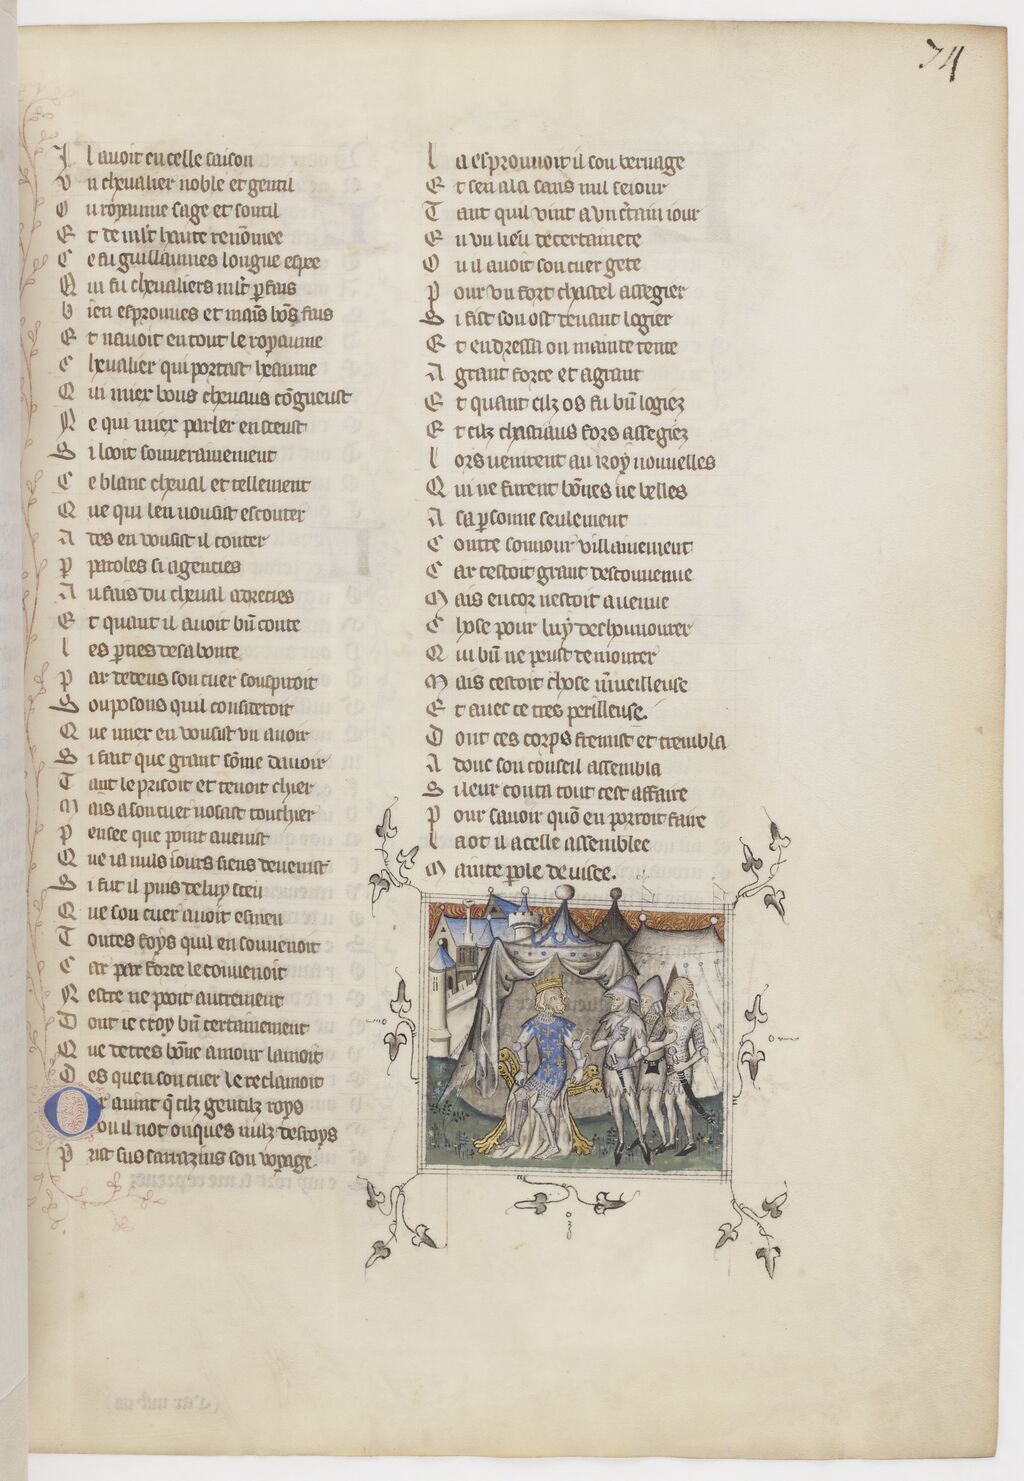 74
Il avoit en celle saison
Un chevalier noble et gentil
Ou royaume sage et soutil
Et de mlt haute renomee
Ce fu guillaumes longue espee
Qui fu chevaliers mlt pfais
Bien esprouves et mais bos fais
Et navoit en tout le royaume
Chevalier qui portast heaume
Qui miex bons chevaus cogneust
Ne qui miex parler en sceust
Si looit souverainement
Ce blanc cheval et tellement
Que qui len vousist escouter
Ades en vousist il conter
Paroles si agencies
Au fais du cheval adrecies
Et quant il avoit bn conte
Les pties de sa bonte
Par dedens son cuer souspiroit
Souposons quil consideroit
Que miex en vousist un avoir
Si fait que grant some davoir
Tant le prisoit et tenoit chier
Mais a son cuer nosast touchier
Pensee que point avenist
Que ia nuls iours siens devenist
Si fut il puis de luy sceu
Que son cuer avoit esmeu
Toutes foys quil en souvenoit
Car par force le convenoit
Nestre ne pooit autrement
Dont ie croy bn certainement
Que de tres bone amour lamoit
Des quen son cuer le reclamoit
Or avint q cilz gentilz roys
Ou il not onques nulz desroys
Prist sus sarrazins son voyage
La esprouvoit il son bernage
Et sen ala sans nul seiour
Tant quil vint a un ctain iour
En un lieu de certainete
Ou il avoit son cuer gete
Pour un fort chastel assegier
Si fist son ost devant logier
Et en dressa on mainte tente
A grant force et a grant
Et quant cilz os fu bn logiez
Et cilz chastiaus fors assegiez
Lors vienrent au roy nouvelles
Qui ne furent bones ne belles
A sa psonne seulement
Contre sonnour villainement
Car cestoit grant desconvenue
Mais encor nestoit avenue
Chose pour luy deshonnorer
Qui bn ne peust demourer
Mais cestoit chose mveilleuse
Et avec ce tres perilleuse.
Dont ces corps fremist et trembla
Adonc son conseil assembla
Si leur conta tout cest affaire
Pour savoir quo en porroit faire
La ot il a celle assemblee
Mainte pole devisee.